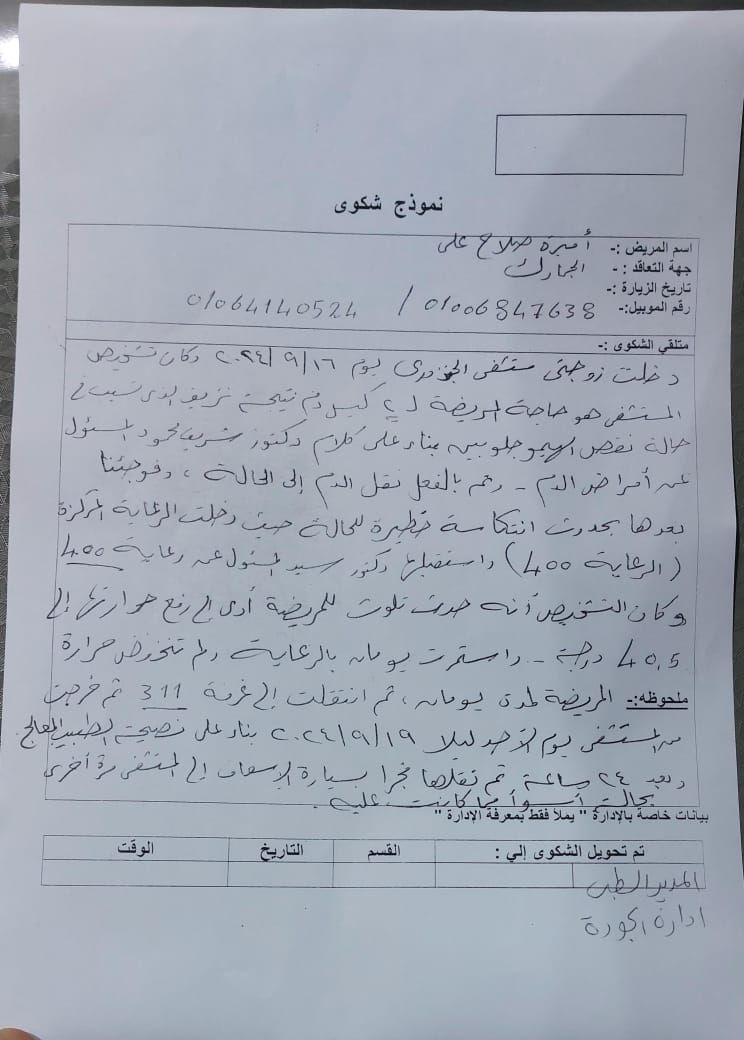 نموذج شكوى
اسم المريض :- أميرة صلاح على
جهة التعاقد :- الجمارك
تاريخ الزيارة :-
رقم الموبيل:- 01006847638 / 01064140524
متلقي الشكوى :-
دخلت زوجتى مستشفى يوم ٢٠٢٤/٩/١٦ وكان تشخيص
المستشفى هو حاجة المريضة لـ ٢ كيس دم نتيجة نزيف الذى تسبب فى
حالة نقص الهيموجلوبين بناء على كلام دكتور شريف محمود المسئول
عن أمراض الدم - وتم بالفعل نقل الدم إلى الحالة ، وفوجئنا
بعدها بحدوث انتكاسة خطيرة للحالة حيث دخلت الرعاية المركزة
(الرعاية 400) واستقبلها دكتور سيد المسئول عن رعاية 400
وكان التشخيص أنه حدث تلوث للمريضة أدى إلى رفع حرارتها إلى
40,5 درجة - واستمرت يومان بالرعاية ولم تنخفض حرارة
ملحوظه:- المريضة لمدة يومان ، ثم انتقلت إلى غرفة 311 ثم خرجت
من المستشفى يوم الأحد ليلا ٢٠٢٤/٩/١٩ بناء على نصيحة الطبيب المعالج
وبعد ٢٤ ساعة تم نقلها فجرا بسيارة الإسعاف إلى المستشفى مرة أخرى
بحالة أسوأ مما كانت عليه .
بيانات خاصة بالإدارة " يملأ فقط بمعرفة الإدارة "
تم تحويل الشكوى إلي : القسم التاريخ الوقت
المدير الطبى
ادارة الجودة